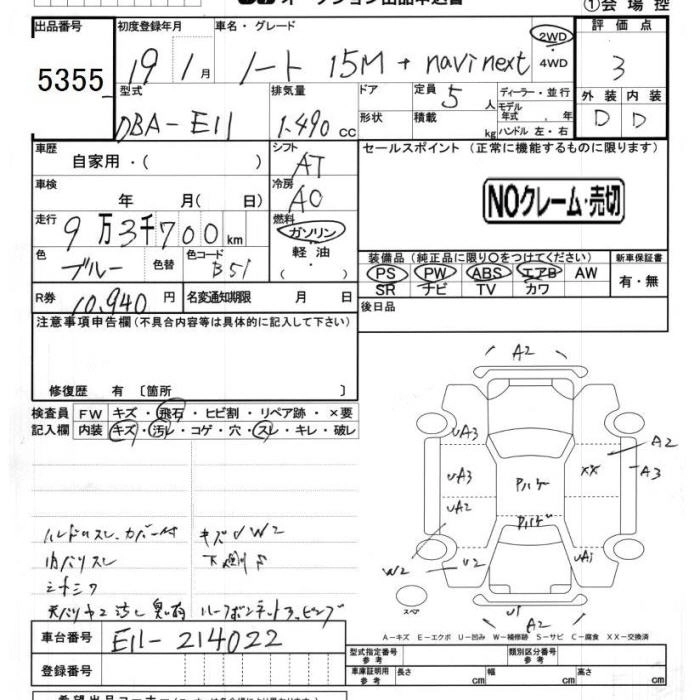 オークション出品申込書
①会場控
出品番号
5355
初度登録年月
19 1月
車名・グレード
ノート 15M + navi next
2WD
・
4WD
評価点
3
外装 内装
D D
型式
DBA-E11
排気量
1.490 cc
ドア
定員 5 人
ディーラー・並行
形状
積載 kg
モデル年式 . 年
ハンドル 左・右
車歴
自家用・( )
シフト
AT
車検
年 月( 日)
冷房
AC
走行
9万3千700km
燃料
ガソリン
・
軽油
・( )
色
ブルー
色替
色コード
B51
R券 10,940 円
名変通知期限 月 日
セールスポイント (正常に機能するものに限ります)
NOクレーム・売切
装備品 (純正品に限り○をつけてください)
PS PW ABS エアB AW
SR ナビ TV カワ
新車保証書
有・無
後日品
注意事項申告欄(不具合内容等は具体的に記入して下さい)
修復歴 有 〔箇所 〕
検査員 FW キズ・飛石・ヒビ割・リペア跡・×要
記入欄 内装 キズ・汚レ・コゲ・穴・スレ・キレ・破レ
ハンドルスレ.カバー付 キズ W2
内バリスレ
A2
UA3
UA3
UA2
XX
A2
A3
W2
U2
UA1
U1
A2
スペア
A-キズ E-エクボ U-凹み W-補修跡 S-サビ C-腐食 XX-交換済
車台番号 E11-214022
登録番号
型式指定番号
参考
類別区分番号
参考
車庫証明用
参考
長さ cm 幅 cm 高さ cm